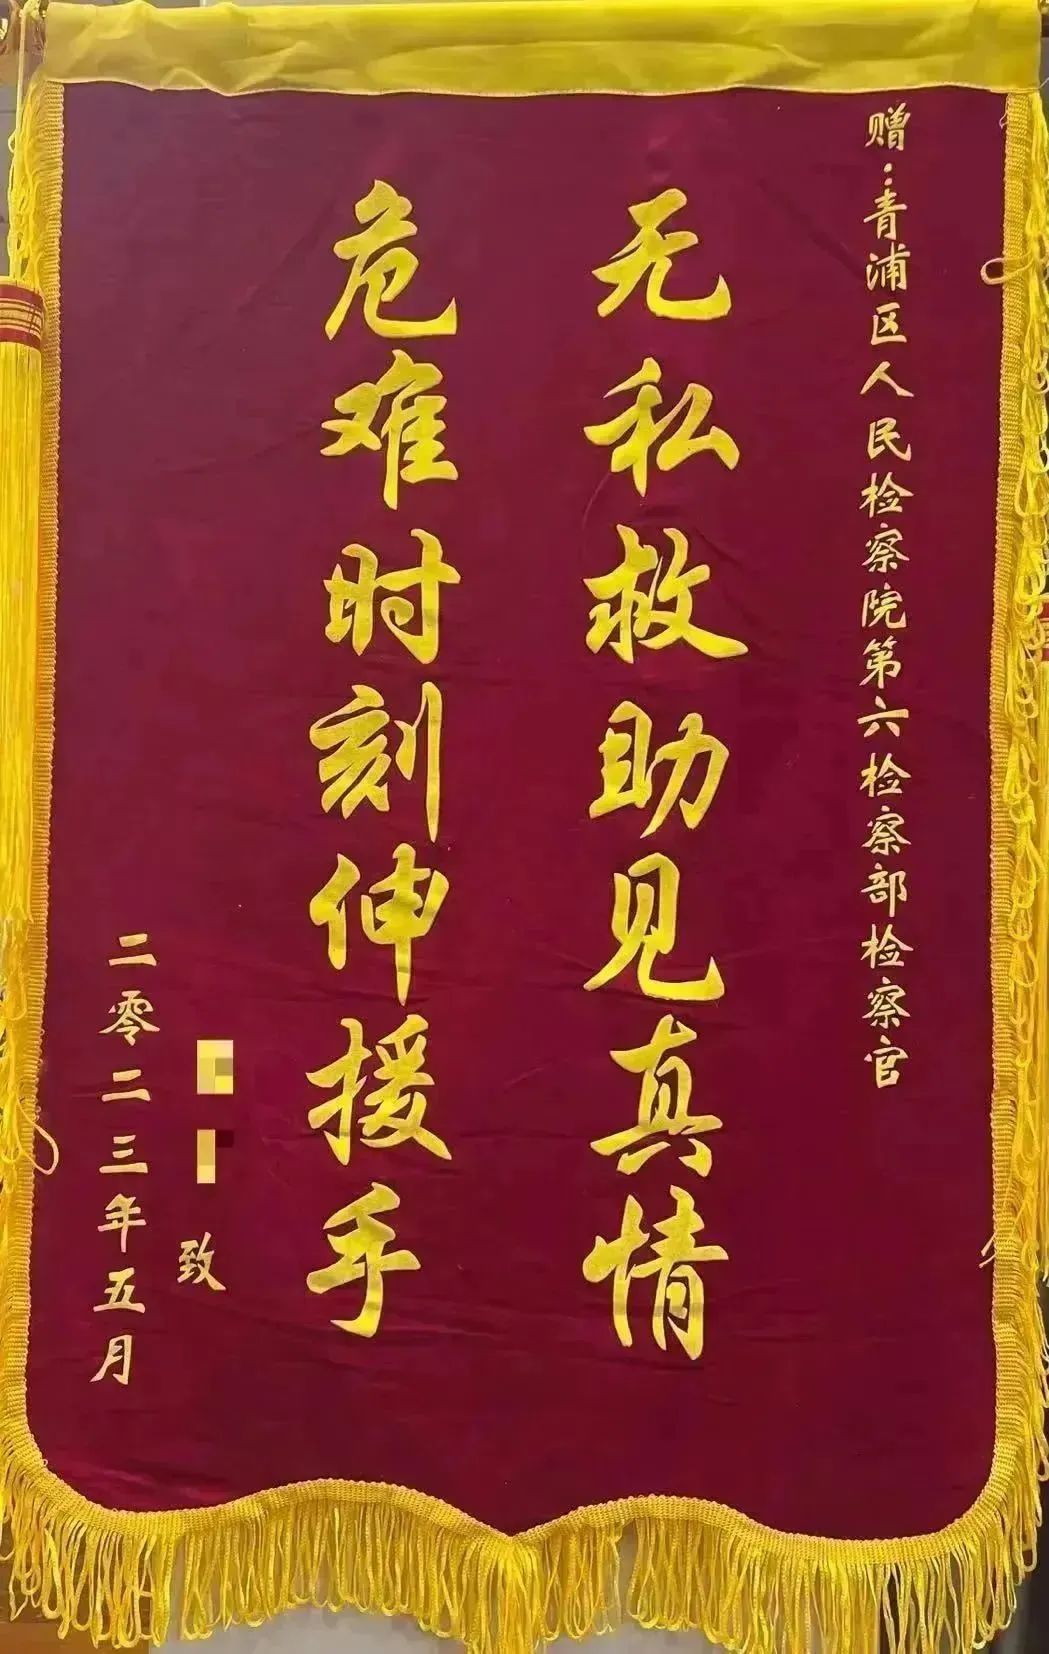 赠：青浦区人民检察院第六检察部检察官
无私救助见真情
危难时刻伸援手
致
二零二三年五月